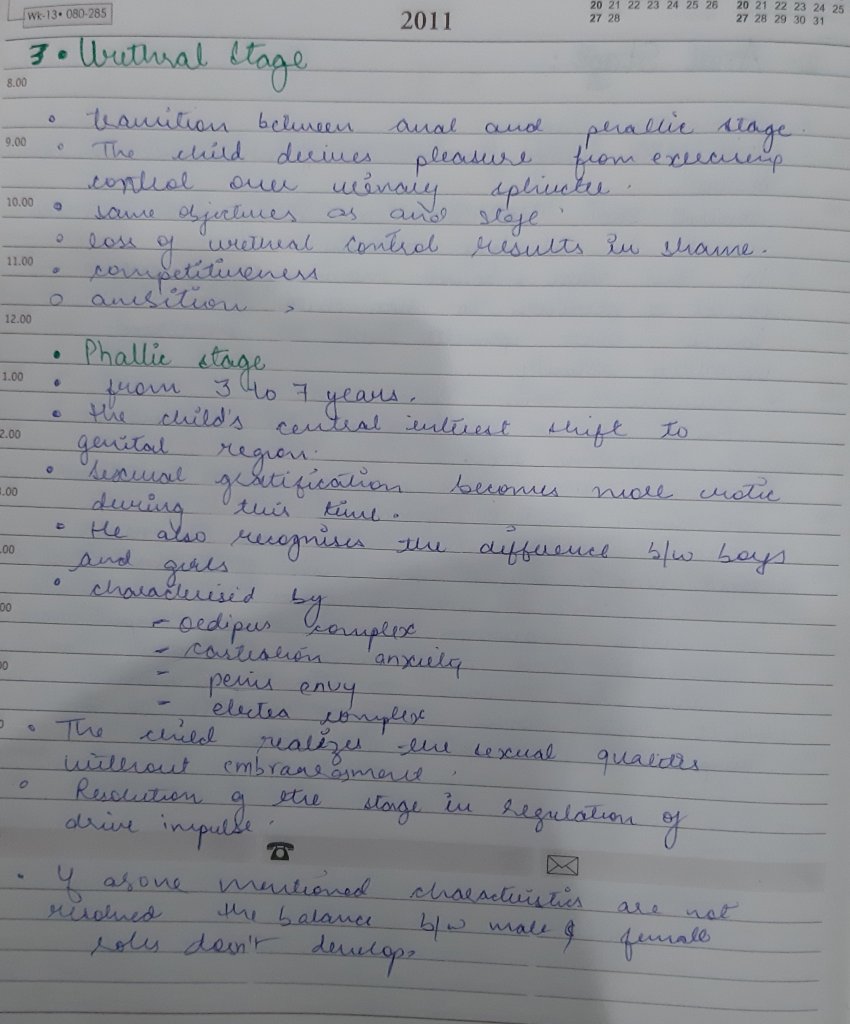 Wk-13• 080-285
2011
20 21 22 23 24 25 26
27 28
20 21 22 23 24 25
27 28 29 30 31
3 • Urethral Stage
8.00
• transition between anal and phallic stage.
9.00
• The child derives pleasure from exercising
control over urinary sphincter.
10.00
• same objectives as anal stage.
• loss of urethral control results in shame.
11.00
• competitiveness
• ambition
12.00
• Phallic stage
1.00
• from 3 to 7 years.
• the child's central interest shift to
2.00
genital region.
• Sexual gratification becomes more erotic
.00
during this time.
• He also recognises the difference b/w boys
.00
and girls
• characterised by
00
- oedipus complex
- castration anxiety
00
- penis envy
- electra complex
• The child realizes the sexual qualities
without embarrassment.
• Resolution of the stage in regulation of
drive impulse.
• If above mentioned characteristics are not
resolved the balance b/w male & female
roles doesn't develop.